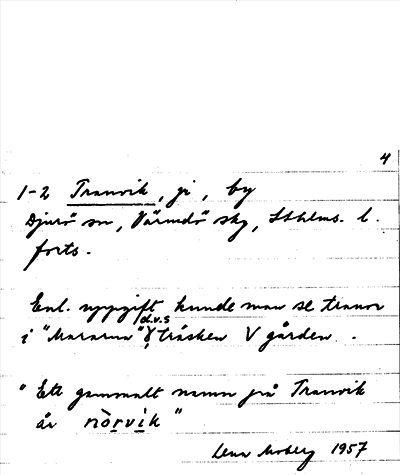 4
1-2 Tranvik, gi, by
Djurö sn, Värmdö skg, Sthlms. l.
forts.
Enl. uppgift kunde man se tranor
d.v.s
i "Mararna" träsken V gården.
"Ett gammalt namn på Tranvik
är nòrvik"
Lena Moberg 1957